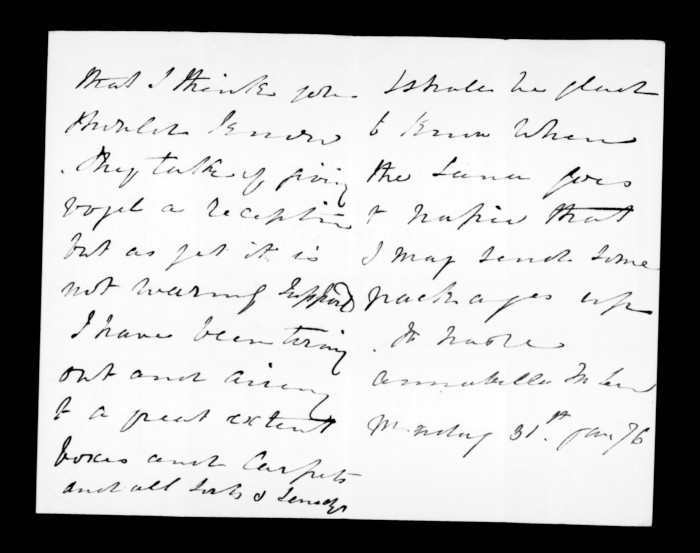 that I think you
should know
. They talk of giving
vogel a reception
but as yet it is
not warmly support
I have been turning
out and airing
to a great extent
boxes and carpets
and all sorts &
I shall be glad
to know when
the Luna goes
to napier that
I may send some
packages up
.
annabella McLean
Monday 31st. Jan 76